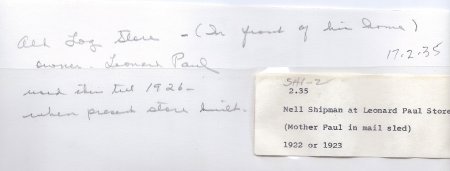 Old Log Store - (In front of his home)
owner. Leonard Paul
used this til 1926 -
when present store built.
17.2.35
SHI-2
2.35
Nell Shipman at Leonard Paul Store
(Mother Paul in mail sled)
1922 or 1923